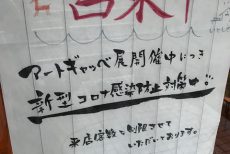 アートギャッベ展開催中につき
新型コロナ感染防止対策で
来店客数を制限させて
いただいております。